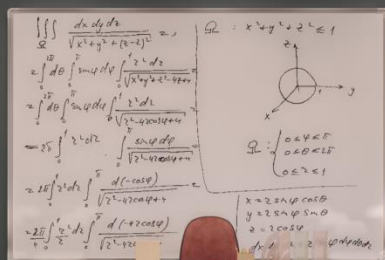 ∭_Ω dx dy dz / √(x²+y²+(z-2)²) =
= ∫₀^2π dθ ∫₀^π sinφ dφ ∫₀^1 z² dz / √(x²+y²+z²-4z+4
= ∫₀^2π dθ ∫₀^π sinφ dφ ∫₀^1 z² dz / √(z²-4z cosφ+4) =
= 2π ∫₀^1 z² dz ∫₀^π sinφ dφ / √(z²-4z cosφ+4 =
= 2π ∫₀^1 z² dz ∫₀^π d(-cosφ) / √(z²-4z cosφ+4 =
= 2π/4 ∫₀^1 z²/z dz ∫₀^π d(-4z cosφ) / √(z²-4z cos
Ω : x²+y²+z² ≤ 1
z
y
x
1
Ω : { 0≤φ≤π
0≤θ≤2π
0≤z≤1
x = z sinφ cosθ
y = z sinφ sinθ
z = z cosφ
dx d
φ dφ dθ dz